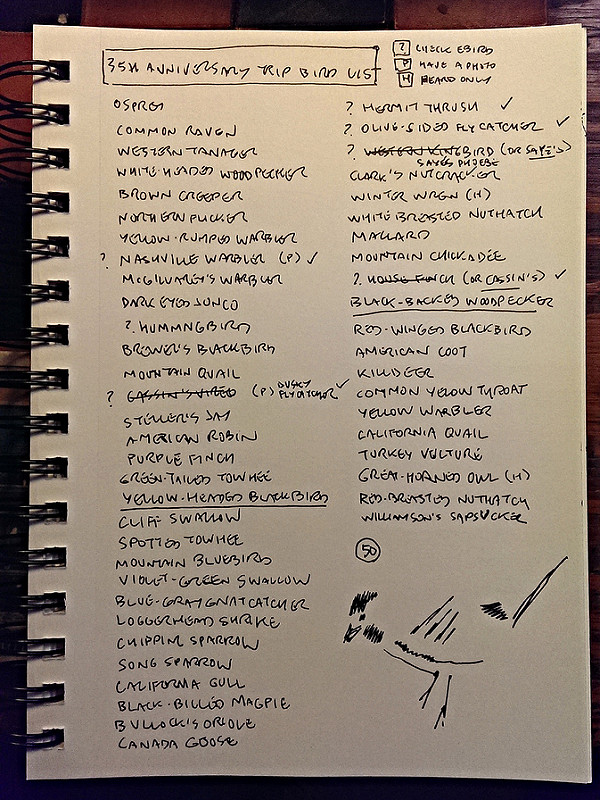 35TH ANNIVERSARY TRIP BIRD LIST
? CHECK EBIRD
P HAVE A PHOTO
H HEARD ONLY
OSPREY
COMMON RAVEN
WESTERN TANAGER
WHITE-HEADED WOODPECKER
BROWN CREEPER
NORTHERN FLICKER
YELLOW-RUMPED WARBLER
? NASHVILLE WARBLER (P) ✓
McGILLVAREY'S WARBLER
DARK EYED JUNCO
? HUMMNGBIRD
BREWER'S BLACKBIRD
MOUNTAIN QUAIL
? CASSIN'S VIREO (P) DUSKY FLYCATCHER ✓
STELLER'S JAY
AMERICAN ROBIN
PURPLE FINCH
GREEN-TAILED TOWHEE
YELLOW-HEADED BLACKBIRD
CLIFF SWALLOW
SPOTTED TOWHEE
MOUNTAIN BLUEBIRD
VIOLET-GREEN SWALLOW
BLUE-GRAY GNATCATCHER
LOGGERHEAD SHRIKE
CHIPPING SPARROW
SONG SPARROW
CALIFORNIA GULL
BLACK-BILLED MAGPIE
BULLOCK'S ORIOLE
CANADA GOOSE
? HERMIT THRUSH ✓
? OLIVE-SIDED FLYCATCHER ✓
? WESTERN KINGBIRD (OR SAYE'S) ✓
SAYES PHOEBE
CLARK'S NUTCRACKER
WINTER WREN (H)
WHITE BREASTED NUTHATCH
MALLARD
MOUNTAIN CHICKADEE
? HOUSE FINCH (OR CASSIN'S) ✓
BLACK-BACKED WOODPECKER
RED-WINGED BLACKBIRD
AMERICAN COOT
KILLDEER
COMMON YELLOWTHROAT
YELLOW WARBLER
CALIFORNIA QUAIL
TURKEY VULTURE
GREAT-HORNED OWL (H)
RED-BREASTED NUTHATCH
WILLIAMSON'S SAPSUCKER
50